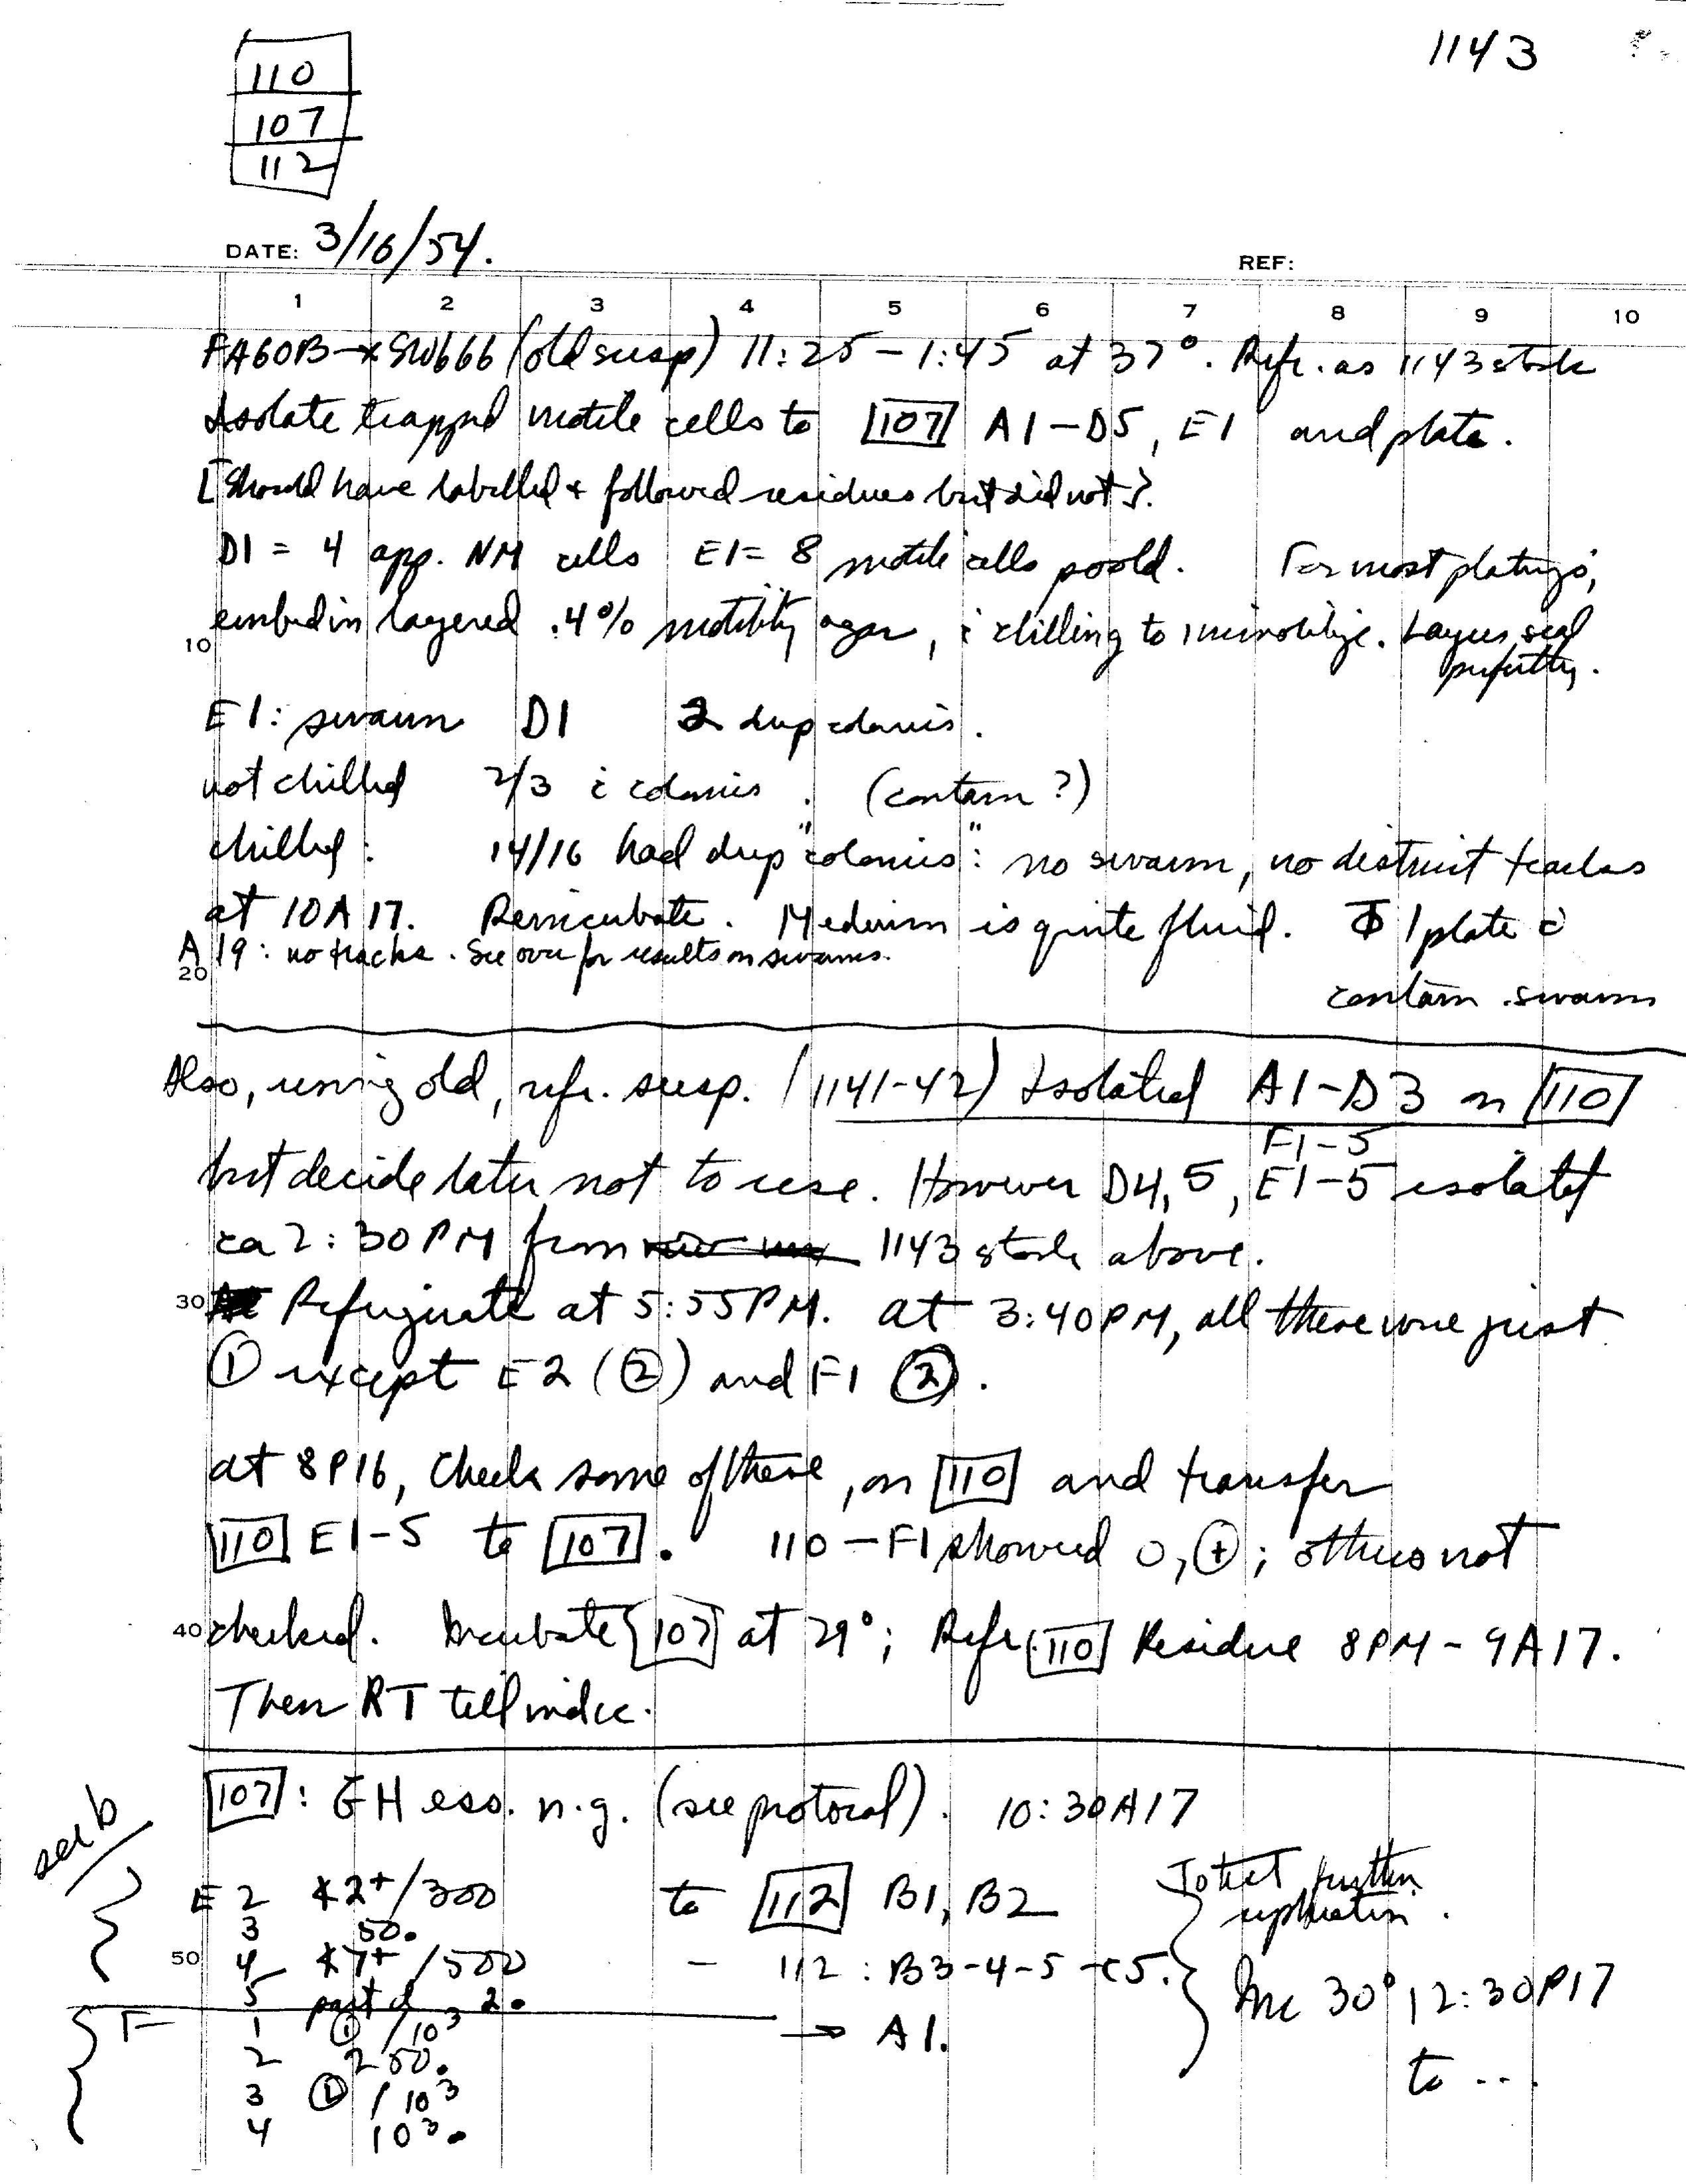 1143
110
107
112
DATE: 3/16/54.
REF:
1 2 3 4 5 6 7 8 9 10
FA60B—x SW666 (old susp) 11:25 – 1:45 at 37°. Refr. as 1143 stock
Isolate trapped motile cells to 107 A1–D5, E1 and plate.
[Should have labelled + followed residues but did not].
D1 = 4 app. NM cells E1 = 8 motile cells poold. For most platings,
10 embed in layered .4% motility agar, c̄ chilling to immobilize. Layers seal
perfectly.
E1: swarm D1 2 deep colonies.
not chilled 2/3 c̄ colonies. (contam?)
chilled: 14/16 had deep "colonies": no swarm, no distinct tracks
at 10A17. Reincubate. Medium is quite fluid. 1 plate c̄
A19: no tracks. See over for results on swarms.
20
contam. swarms
Also, using old, refr. susp. (1141-42) Isolated A1–D3 on 110
F1–5
but decide later not to use. However D4,5, E1–5 isolated
ca 2:30 PM from 1143 stock above.
30 Refrigerate at 5:55PM. at 3:40PM, all these were just
① except E2 (②) and F1 ②.
at 8P16, Check some of these, on 110 and transfer
110 E1–5 to 107. 110–F1 showed 0, ⊕; others not
40 checked. Incubate 107 at 29°; Refr. 110 Residue 8PM – 9A17.
Then RT till indic.
107: GH ess. n.g. (see protocol). 10:30A17
see b
E 2 *2+/300 to 112 B1, B2 To test further
3 50.
50 4 *7+/500 – 112: B3-4-5-C5. Inc 30° 12:30P17
5 part of 2.
F 1 ① /10³ → A1.
2 250. to ...
3 ① /10³
4 10³.